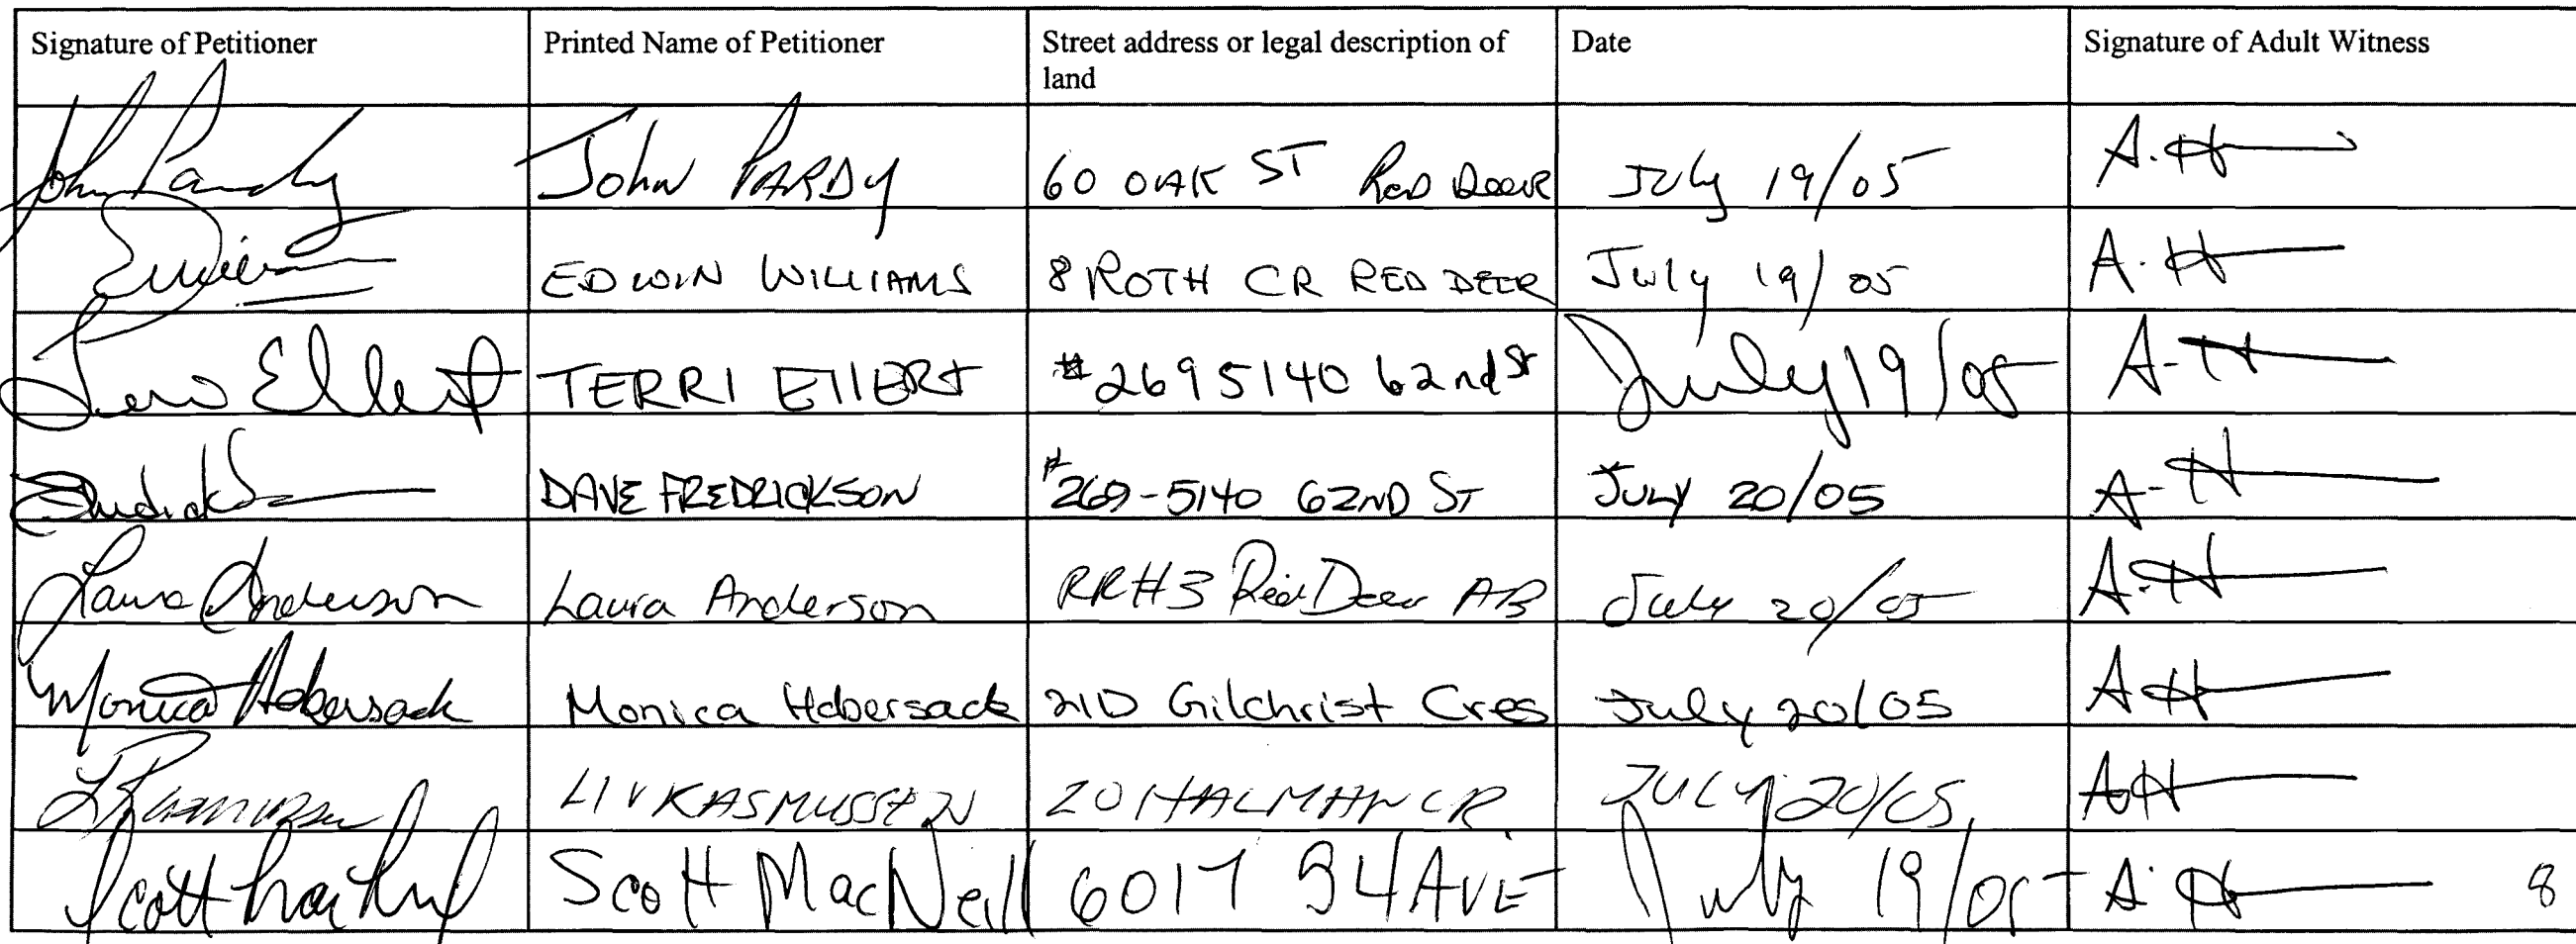 Signature of Petitioner Printed Name of Petitioner Street address or legal description of land Date Signature of Adult Witness
John Pardy John PARDY 60 OAK ST RED DEER July 19/05 A. H
EDWIN WILLIAMS 8 ROTH CR RED DEER July 19/05 A. H
Terri Ellert TERRI EllERt #269 5140 62nd St July 19/05 A-H
DAVE FREDRICKSON #269-5140 62ND ST JULY 20/05 A-H
Laura Anderson Laura Anderson RR#3 Red Deer AB July 20/05 A-H
Monica Habersack Monica Habersack 21D Gilchrist Cres July 20/05 A H
LRasmussen LIV RASMUSSEN 20 HALMAN CR. JULY 20/05 AH
Scott MacNeill Scott MacNeill 6017 54 AVE July 19/05 A. H 8